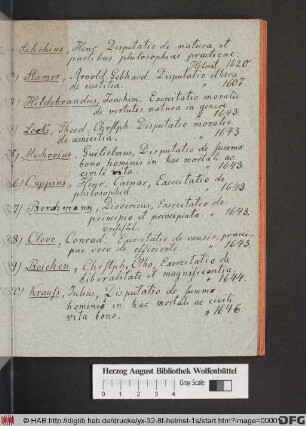 Salichius, Henr. Disputatio de natura et
partibus philosophiae practicae.
Hlmst. 1620
Stamer, Arnold Gebhard. Disputatio ethica
de iustitia. " 1607.
Hildebrandus, Joachim. Exercitatio moralis
de virtutis natura in genere
" 1643.
Theod. Chrstph. Disputatio moralis
de amicitia. " 1643.
Mechovius, Guilielmus, Disputatio de summo
bono hominis in hac mortali ac
civili vita " 1643.
6) Cuppius, Henr. Caspar, Exercitatio de
philosophia " 1643.
7) Bordsmann, Diodericus, Exercitatio de
principio et principiato " 1643.
8) Clove, Conrad. Exercitatio de causis, praeci-
pue vero de efficiente " 1643.
9) Reichen, Chrstph. Otho, Exercitatio de
liberalitate et magnificentia
" 1644.
20) Krauss, Julius, Disputatio de summo
hominis in hac mortali ac civili
vita bono. " 1646.
Herzog August Bibliothek Wolfenbüttel
0 1 2 3 4 5 6 7 8
Gray Scale
© HAB http://diglib.hab.de/drucke/yx-32-8f-helmst-1s/start.htm?image=0000